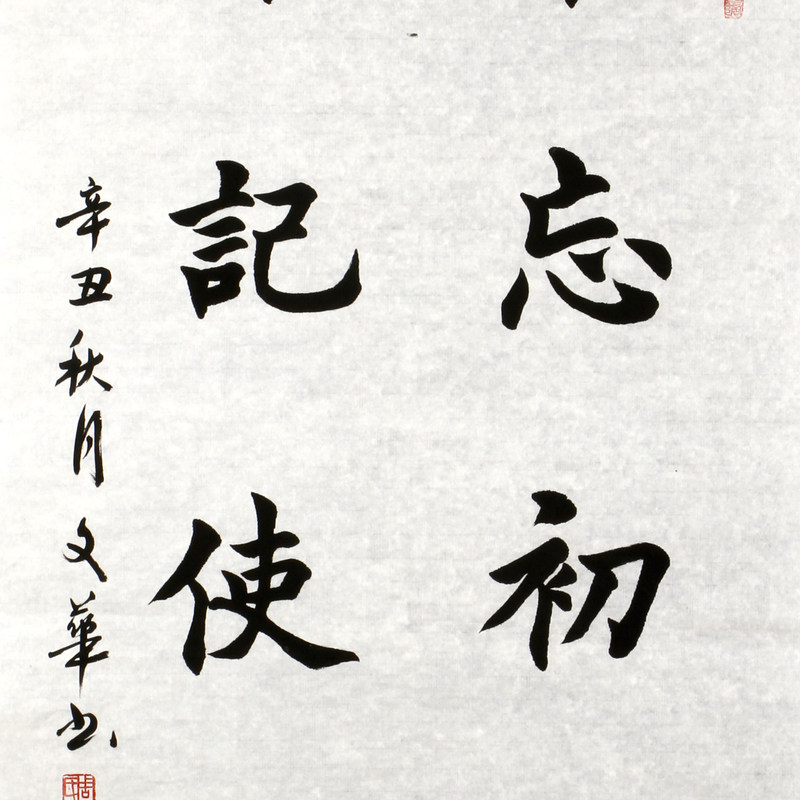 忘初
記使
辛丑秋月文華书